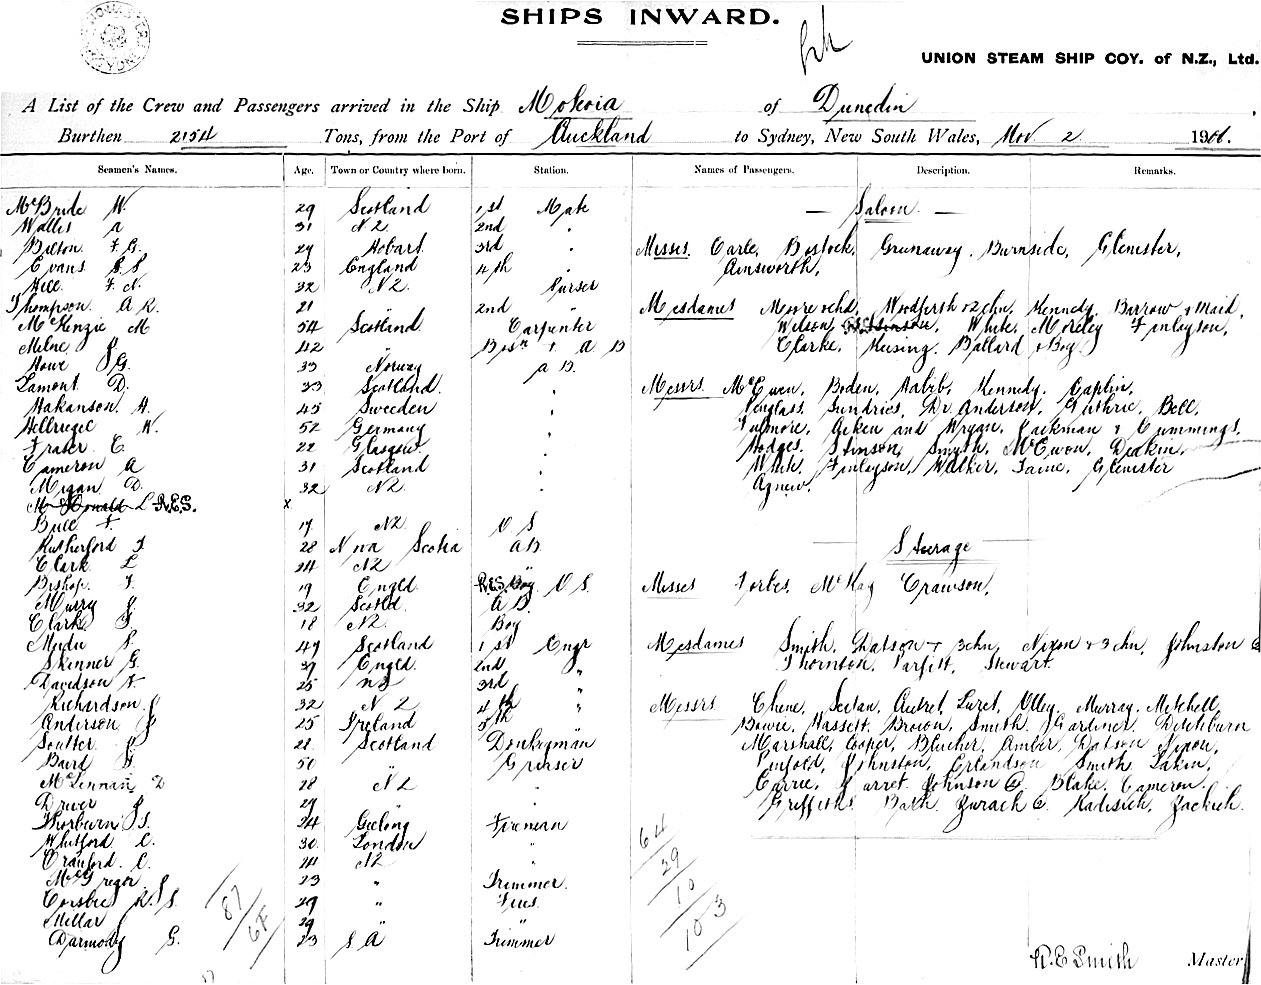 SHIPS INWARD.
UNION STEAM SHIP COY. of N.Z., Ltd.
A List of the Crew and Passengers arrived in the Ship Mokoia of Dunedin
Burthen 2154 Tons, from the Port of Auckland to Sydney, New South Wales, Nov 2 19
Seamen's Names. Age. Town or Country where born. Station. Names of Passengers. Description. Remarks.
McBride W. 29 Scotland 1st Mate
Wallis A 31 NZ 2nd "
Bilton F. G. 29 Hobart 3rd "
Evans 23 England 4th "
Hill F. N. 32 NZ Purser
Thompson A R. 21 " 2nd "
McKenzie M 54 Scotland Carpenter
Milne J 42 " Bosn + A B
Howe G. 33 Norway A B.
Lamont D. 33 Scotland "
Hakanson A. 45 Sweeden "
Hellriegel W. 52 Germany "
Fraser C. 22 Glasgow "
Cameron A 31 Scotland "
Migan D. 32 NZ "
McDonald L R.E.S. x
Bull F. 17 NZ O S
Rutherford J 28 Nova Scotia AB
Clark L 24 NZ "
Bishop. F. 19 Engld R.E.S. Boy O S.
Murry J 32 Scotld. A B.
Clark J. 18 NZ Boy
Mudie P. 49 Scotland 1st Engr
Skinner G. 37 Engld. 2nd "
Davidson A 25 NZ 3rd "
Richardson J 32 NZ 4th "
Anderson J 25 Ireland 5th "
Soutter J 22 Scotland Donkeyman
Baird A 50 " Greaser
McLennan D 28 NZ "
Driver J 29 " "
Thorburn J S. 24 Geelong Fireman
Whitford C. 30 London "
Cranford. C. 24 NZ "
McGregor J 23 " Trimmer.
Corsbie R. J S. 29 "
Millar J 29 " "
Darmody G. 23 S A Trimmer
— Saloon. —
Misses. Earle, Bostock, Greenaway. Burnside, Glenister,
Ainsworth,
Mesdames Moore + chd, Woodforth + 2 chn, Kennedy, Barrow + Maid,
Wilson, White, Moreley Finlayson,
Clarke, Keising. Ballard + Boy.
Messrs. McEwen, Boden, Habib, Kennedy, Caplin,
Sundries, Dr Anderson, Guthrie, Bell,
Fulmore, Aiken and Wryan, Jackman + Cummings,
Hodges. Stinson, Smyth, McEwon, Deakin,
White, Finlayson, Walker, Taine, Glenister
Agnew.
Steerage
Misses Forbes, McKay Crawson,
Mesdames Smith, Datson + 3 chn, Nixon + 3 chn, Johnston C
Thornton, Parfitt, Stewart
Messrs Chene, Sexton, Olley, Murray, Mitchell,
Bowie, Hassett, Brown, Smith. Gardiner, Ditchburn
Marshall, Cooper, Blucher, Amber, Datson Nixon,
Penfold, Johnston, Erlandson Smith, Lakin,
Currie, Jarret. Johnson C. Blake, Cameron.
Griffiths Bath Zurach C. Radisich, Zackich.
64
29
10
103
87
R.E Smith Master